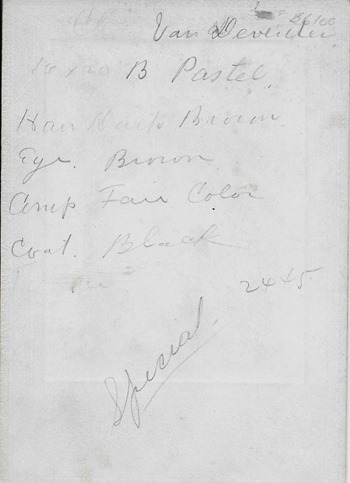 Van Deventer
16 x 20 B Pastel
Hair Dark Brown
Eye. Brown
Comp Fair Color
Coat. Black
2445
Special